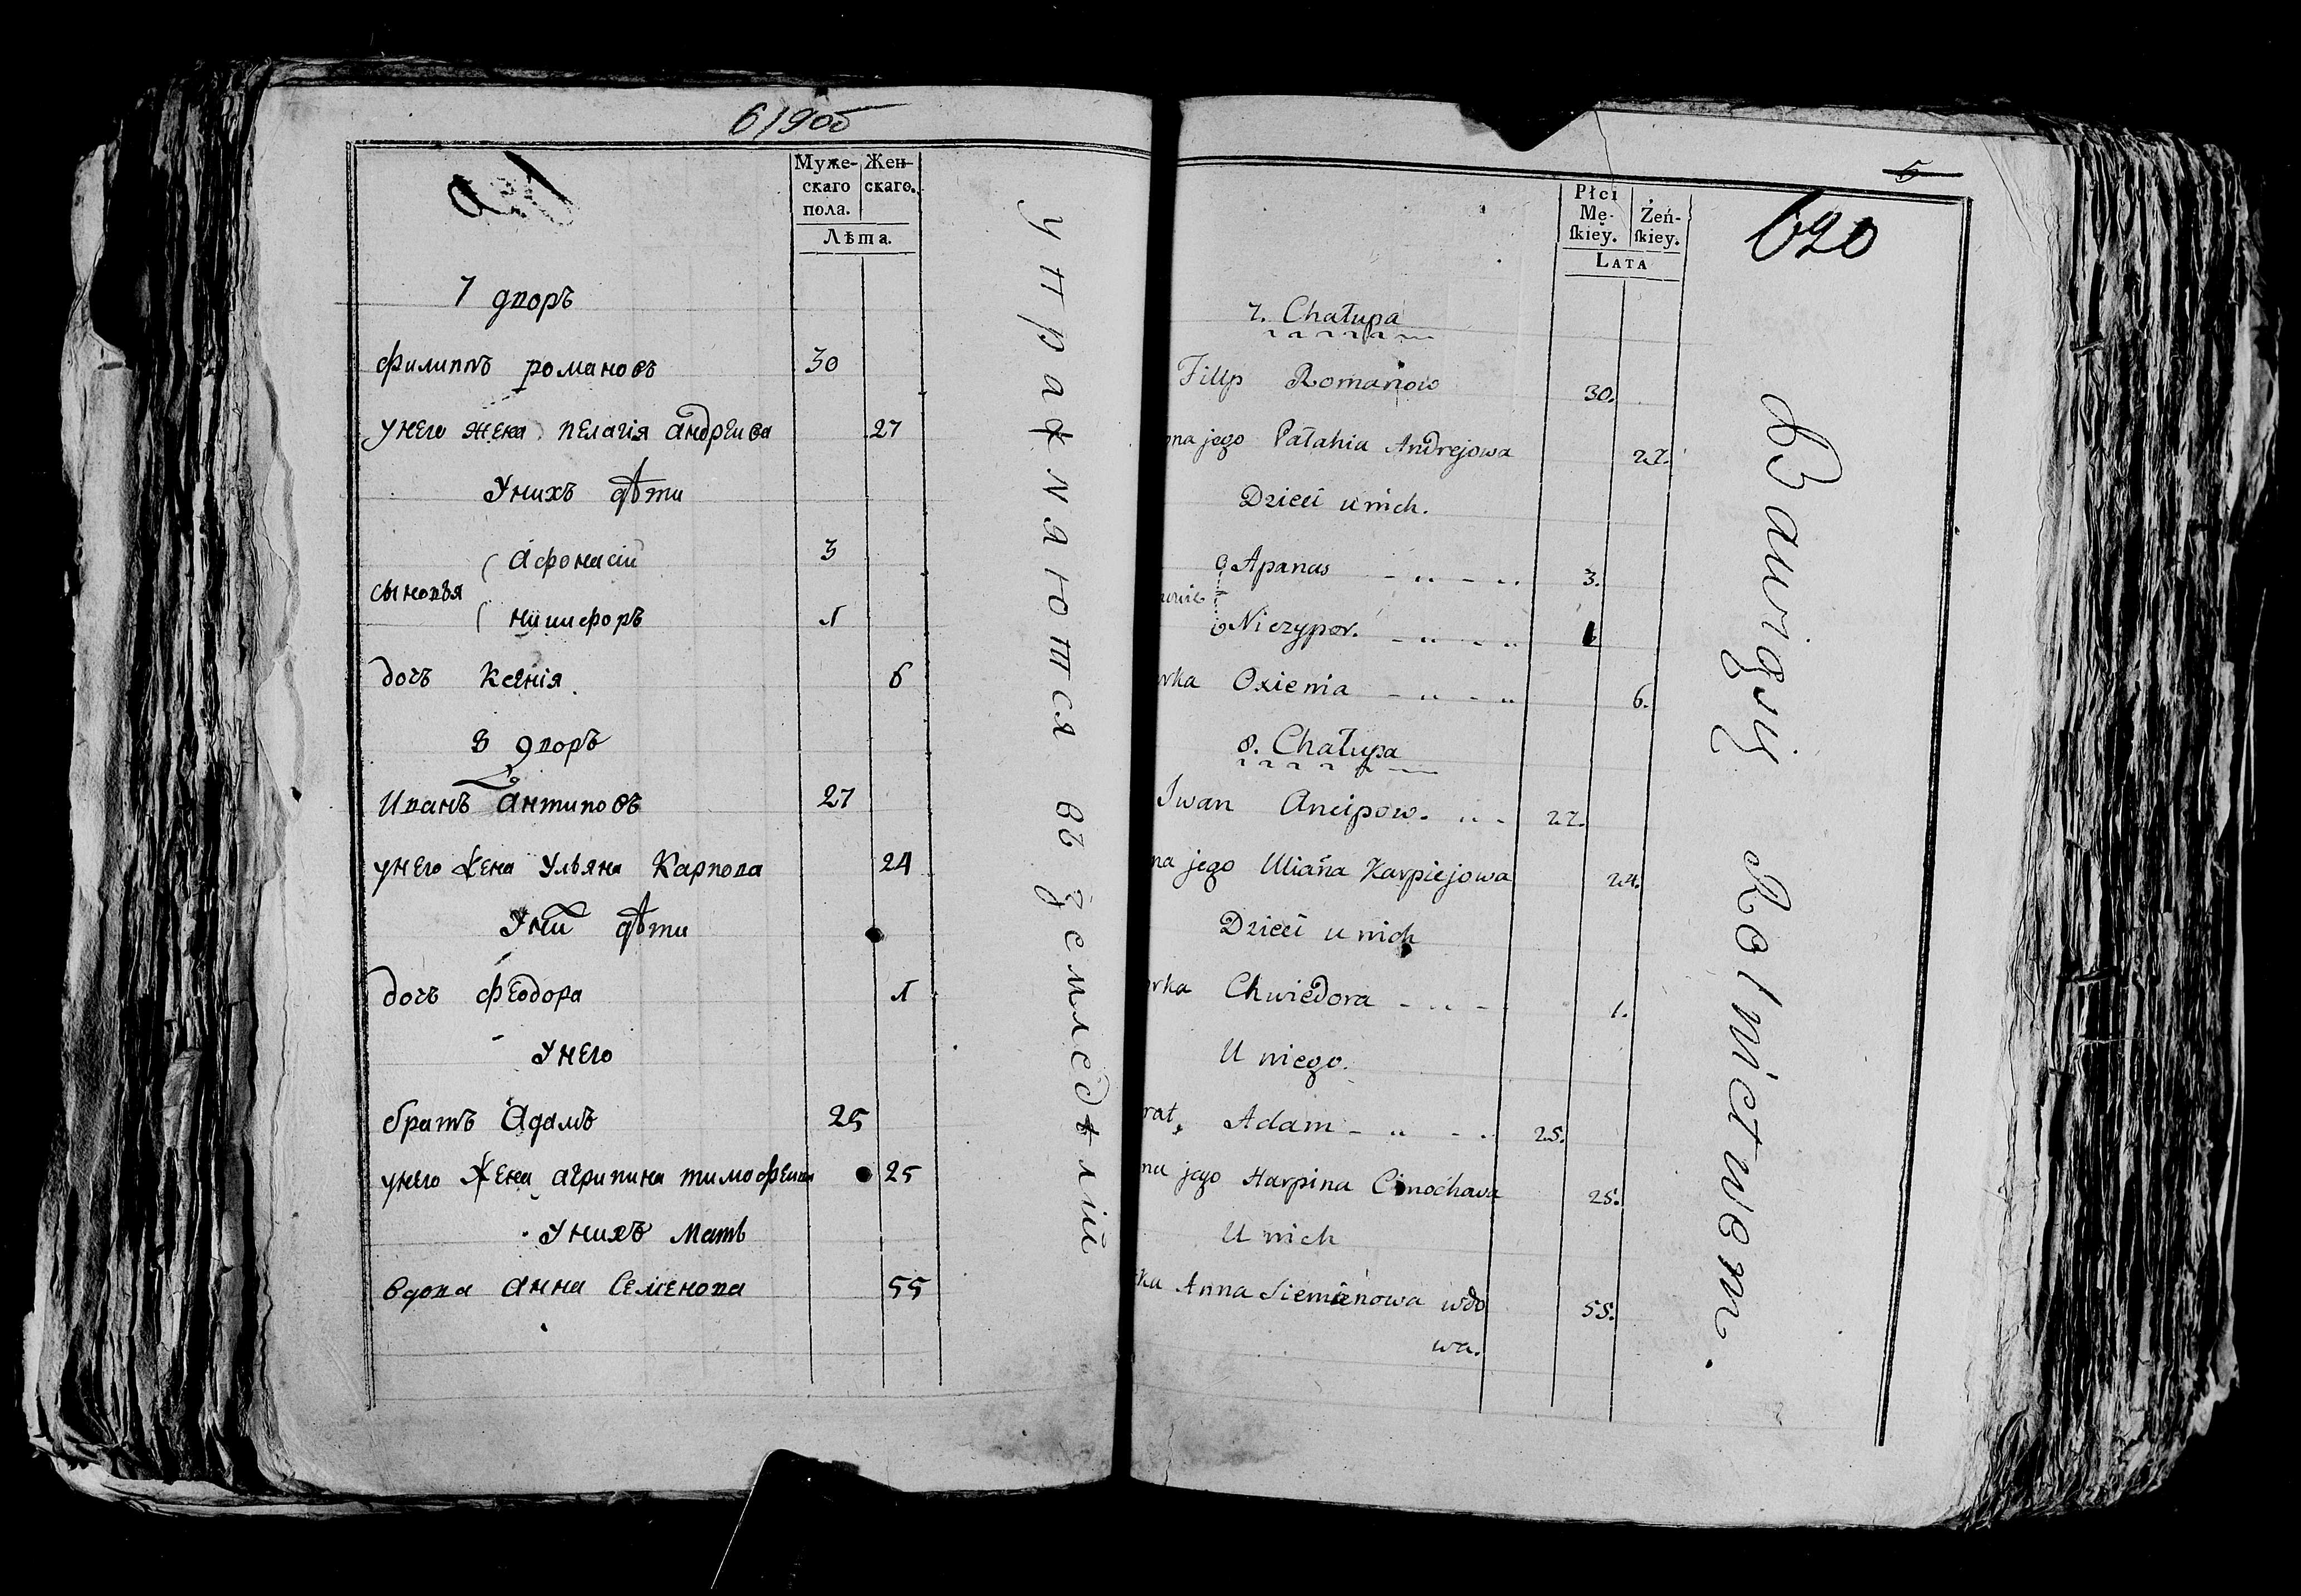 619об
Муже-
скаго
пола.
Жен-
скаго.
Лѣта.
7 дворъ
филиппъ романовъ 30
унего жена пелагія андреива 27
Унихъ дѣти
Афонасіи 3
сыновья
ничифоръ 1
дочъ Ксенія 6
8 дворъ
Иванъ Антиповъ 27
унего жена Ульяна Карпова 24
Уни дѣти
дочъ феодора 1
Унего
братъ Адамъ 25
унего жена агрипина тимофеива 25
Унихъ мать
вдова анна Семенова 55
упражняются въ земледѣлій
5
620
Płci
Mę-
ſkiey.
Żeń-
ſkiey.
LATA
7. Chałupa
Filip Romanow 30.
ona jego Pałahia Andrejowa 27.
Dzieci u nich.
Apanas 3.
Niczypor. 1
rka Oxienia 6.
8. Chałupa
Iwan Ancipow. 27.
na jego Uliana Karpiejowa 24.
Dzieci u nich
rka Chwiedora 1.
U niego.
rat, Adam 25.
na jego Harpina Cimochawa 25.
U nich
ka Anna Siemienowa wdo 55.
wa.
Bawięcy Rolnictwem.